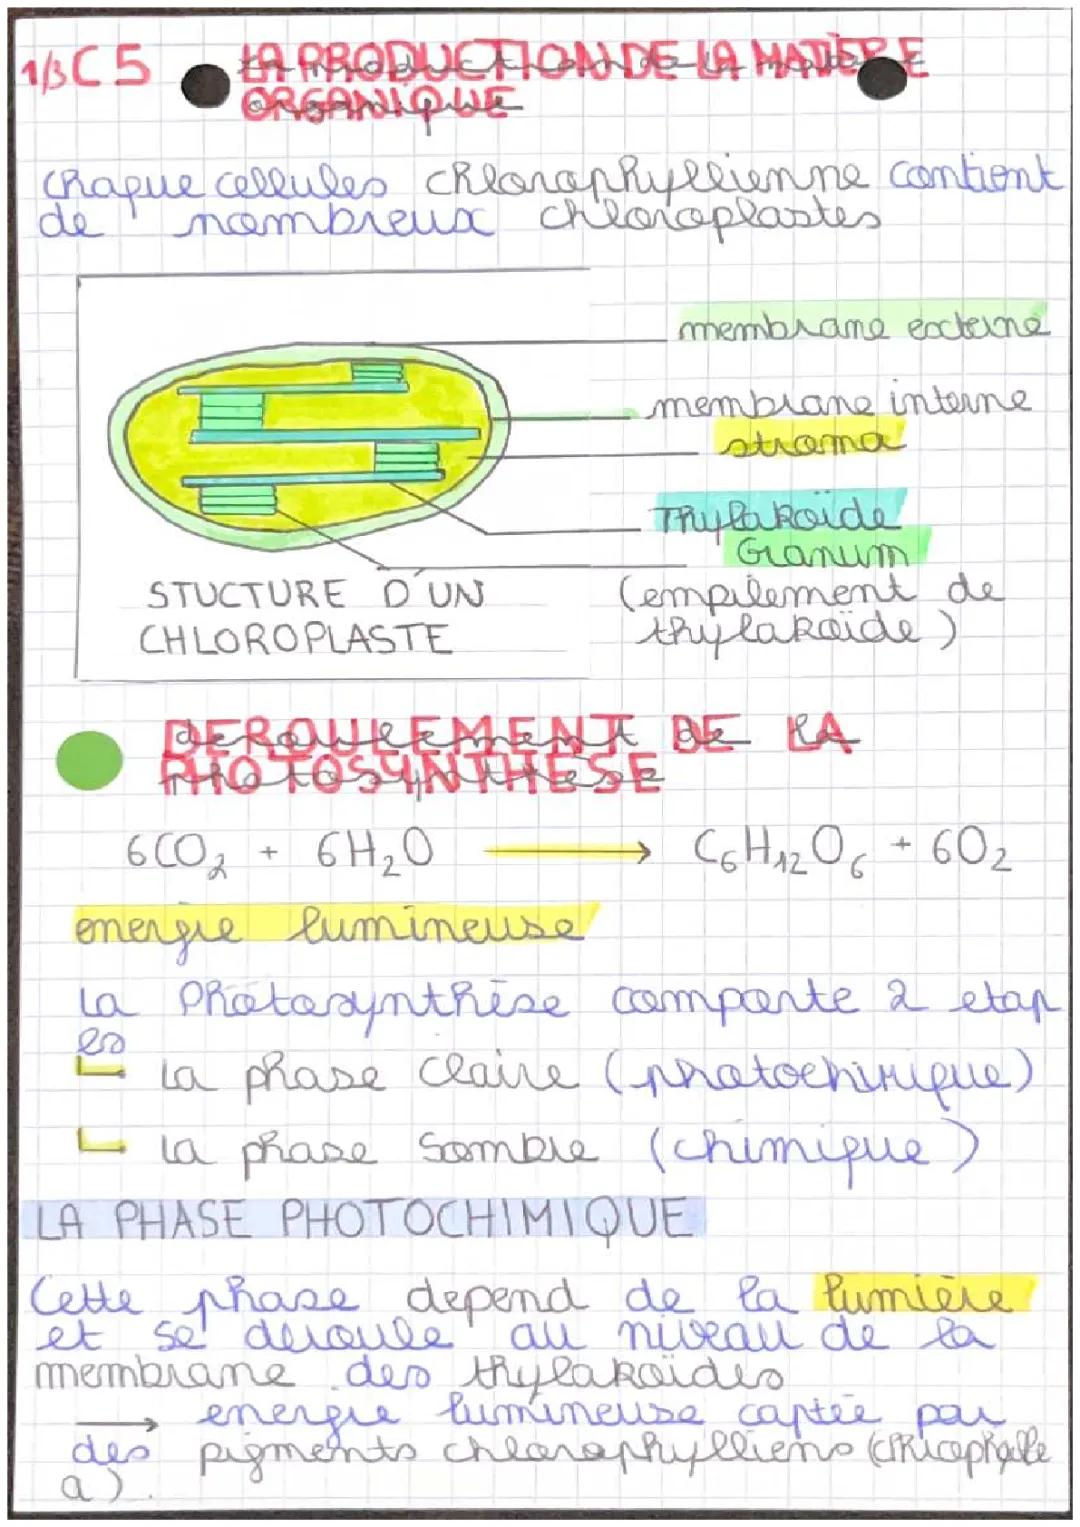 1/3 C5 LA PRODUCTION DE LA MATIÈRE
ORGANIQUE
Chaque cellules chlorophyllienne contient
de nombreux chloroplastes
membrane externe
membrane interne
stroma
Thylakoïde
Granum
(empilement de
thylakoïde)
STUCTURE D'UN
CHLOROPLASTE
DEROULEMENT DE LA
PHOTOSYNTHESE
6CO₂ + 6H₂O → C₆H₁₂O₆ + 6O₂
energie lumineuse
La Photosynthèse comporte 2 etap
es
La phase Claire (photochimique)
La phase Sombre (chimique)
LA PHASE PHOTOCHIMIQUE
Cette phase depend de la lumière
et se deroule au niveau de la
membrane des thylakoïdes
→ energie lumineuse captée par
des pigments chlorophylliens
a).